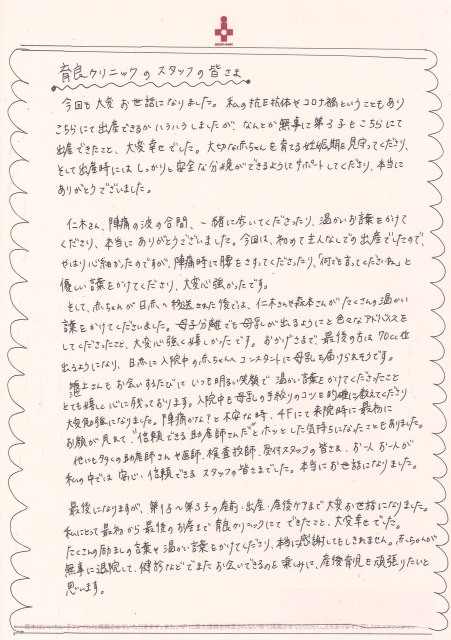 育良クリニックのスタッフの皆さま
今回も大変お世話になりました。私の抗E抗体やコロナ禍ということもあり
こちらにて出産できるかハラハラしましたが、なんとか無事に第3子もこちらにて
出産できたこと、大変幸せでした。大切な赤ちゃんを育てる妊娠期を見守ってくださり、
そして出産時にはしっかりと安全な分娩ができるようにサポートしてくださり、本当に
ありがとうございました。
仁木さん、陣痛の波の合間、一緒に歩いてくださったり、温かいお言葉をかけて
くださり、本当にありがとうございました。今回は、初めて主人なしでの出産でしたので、
やはり心細かったのですが、陣痛時に腰をさすってくださったり、「何でも言ってくださいね」と
優しい言葉をかけてくださり、大変心強かったです。
そして、赤ちゃんが日赤へ移送された後では、仁木さんや森本さんがたくさんの温かい
言葉をかけてくださいました。母子分離でも母乳が出るようにと色々なアドバイスを
してくださったこと、大変心強く嬉しかったです。おかげさまで、最後の方は70cc位
出るようになり、日赤に入院中の赤ちゃんへコンスタントに母乳を届けられそうです。
上さんもお会いするたびにいつも明るい笑顔で温かい言葉をかけてくださったこと
とても嬉しく心に残っております。入院中も母乳の手絞りのコツを的確に教えてくださり
大変勉強になりました。陣痛かな?と不安な時、4Fにて来院時に最初に
お顔が見えて"信頼できる助産師さんだ"とホッとした気持ちになったこともありました。
他にも多くの助産師さんや医師、検査技師、受付スタッフの皆さま、お一人お一人が
私の中では安心・信頼できるスタッフの皆さまでした。本当にお世話になりました。
最後になりますが、第1子〜第3子の産前・出産・産後ケアまで大変お世話になりました。
私にとって最初から最後のお産まで育良クリニックにてできたこと、大変幸せでした。
たくさんの励ましの言葉や温かい言葉をかけてくださり、本当に感謝してもしきれません。赤ちゃんが
無事に退院して、健診などでまたお会いできるのを楽しみに、産後育児を頑張りたいと
思います。